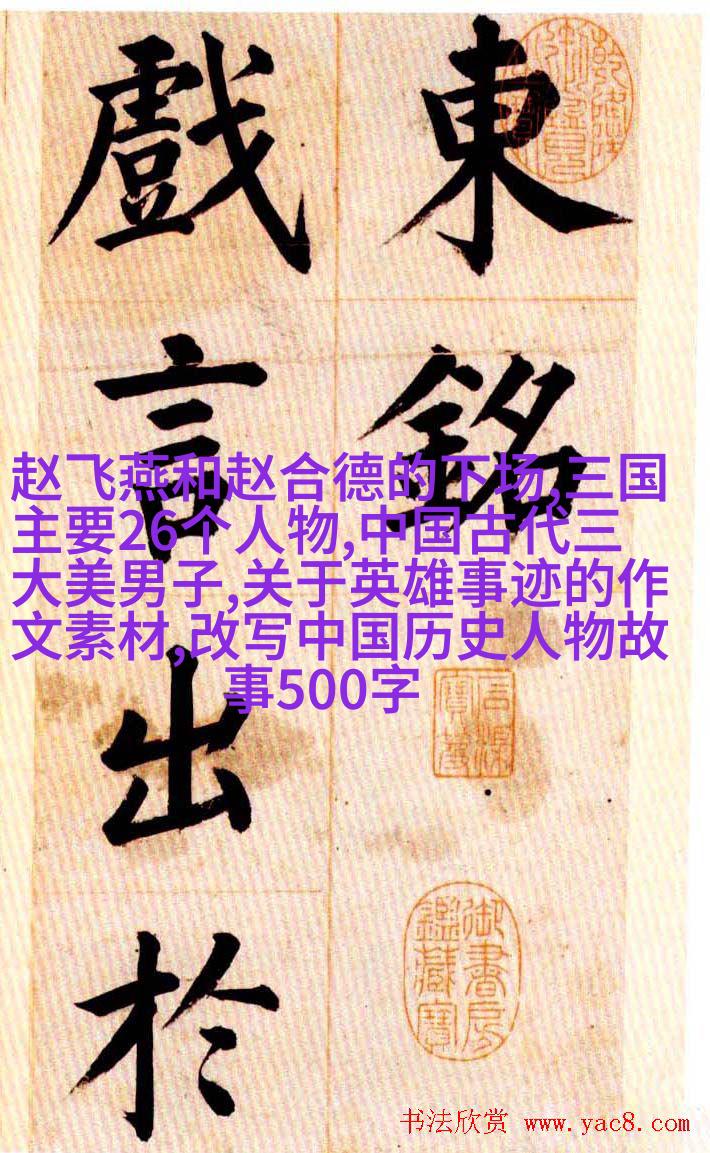 東銘
戲言出於
赵飞燕和赵合德的下场,三国
主要26个人物,中国古代三
大美男子,关于英雄事迹的作
文素材,改写中国历史人物故
事500字
石渠
寶笈
御書房
鑑藏寶
书法欣赏 www.yac8.com